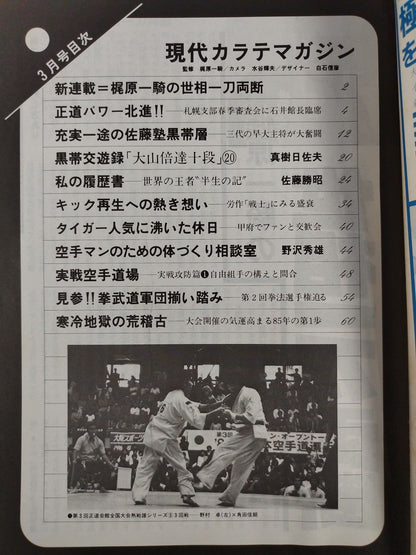 3月号目次
現代カラテマガジン
監修 梶原一騎/カメラ 水谷輝夫/デザイナー 白石信雄
新連載=梶原一騎の世相一刀両断 2
正道パワー北進!!——札幌支部春季審査会に石井館長臨席 4
充実一途の佐藤塾黒帯層——三代の早大主将が大奮闘 12
黒帯交遊録「大山倍達十段」⑳ 真樹日佐夫 20
私の履歴書——世界の王者“半生の記” 佐藤勝昭 24
キック再生への熱き想い——労作「戦士」にみる盛衰 34
タイガー人気に沸いた休日——甲府でファンと交歓会 40
空手マンのための体づくり相談室 野沢秀雄 44
実戦空手道場——実戦攻防篇❶自由組手の構えと間合 48
見参!!拳武道軍団揃い踏み——第2回拳法選手権迫る 54
寒冷地獄の荒稽古——大会開催の気運高まる85年の第1歩 60
大阪スポーツ
第3回
ン・オープントー
本空手道選
●第3回正道会館全国大会熱戦譜シリーズ③3回戦——野村 卓(左)×角田信朗
極
を